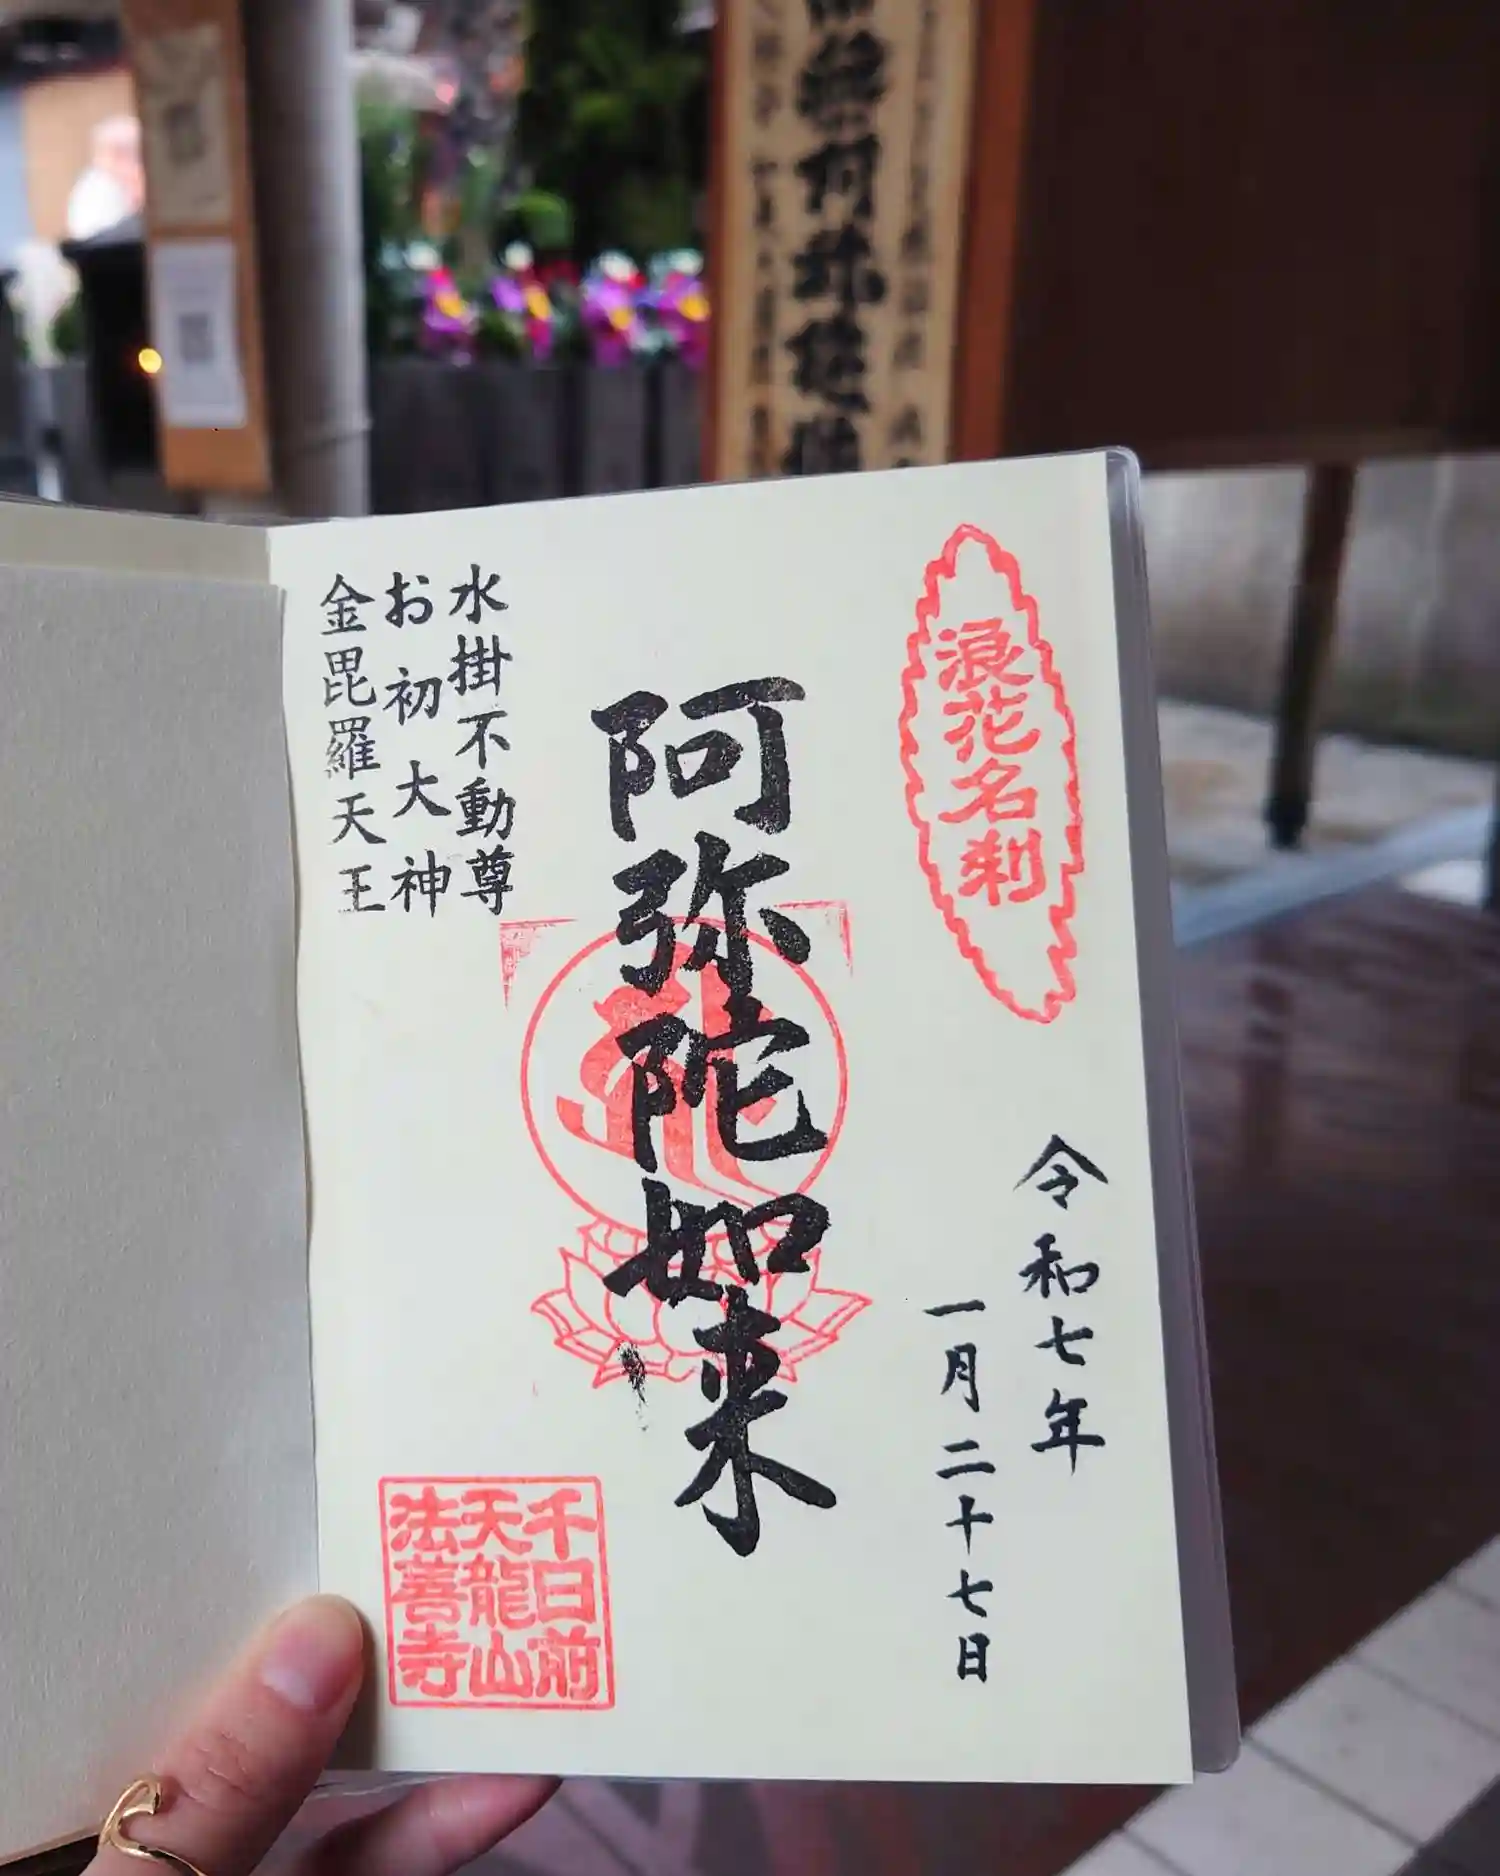 浪花名刹
令和七年
一月二十七日
阿弥陀如来
水掛不動尊
お初大神
金毘羅天王
千日前
天龍山
法善寺
阿弥陀如来